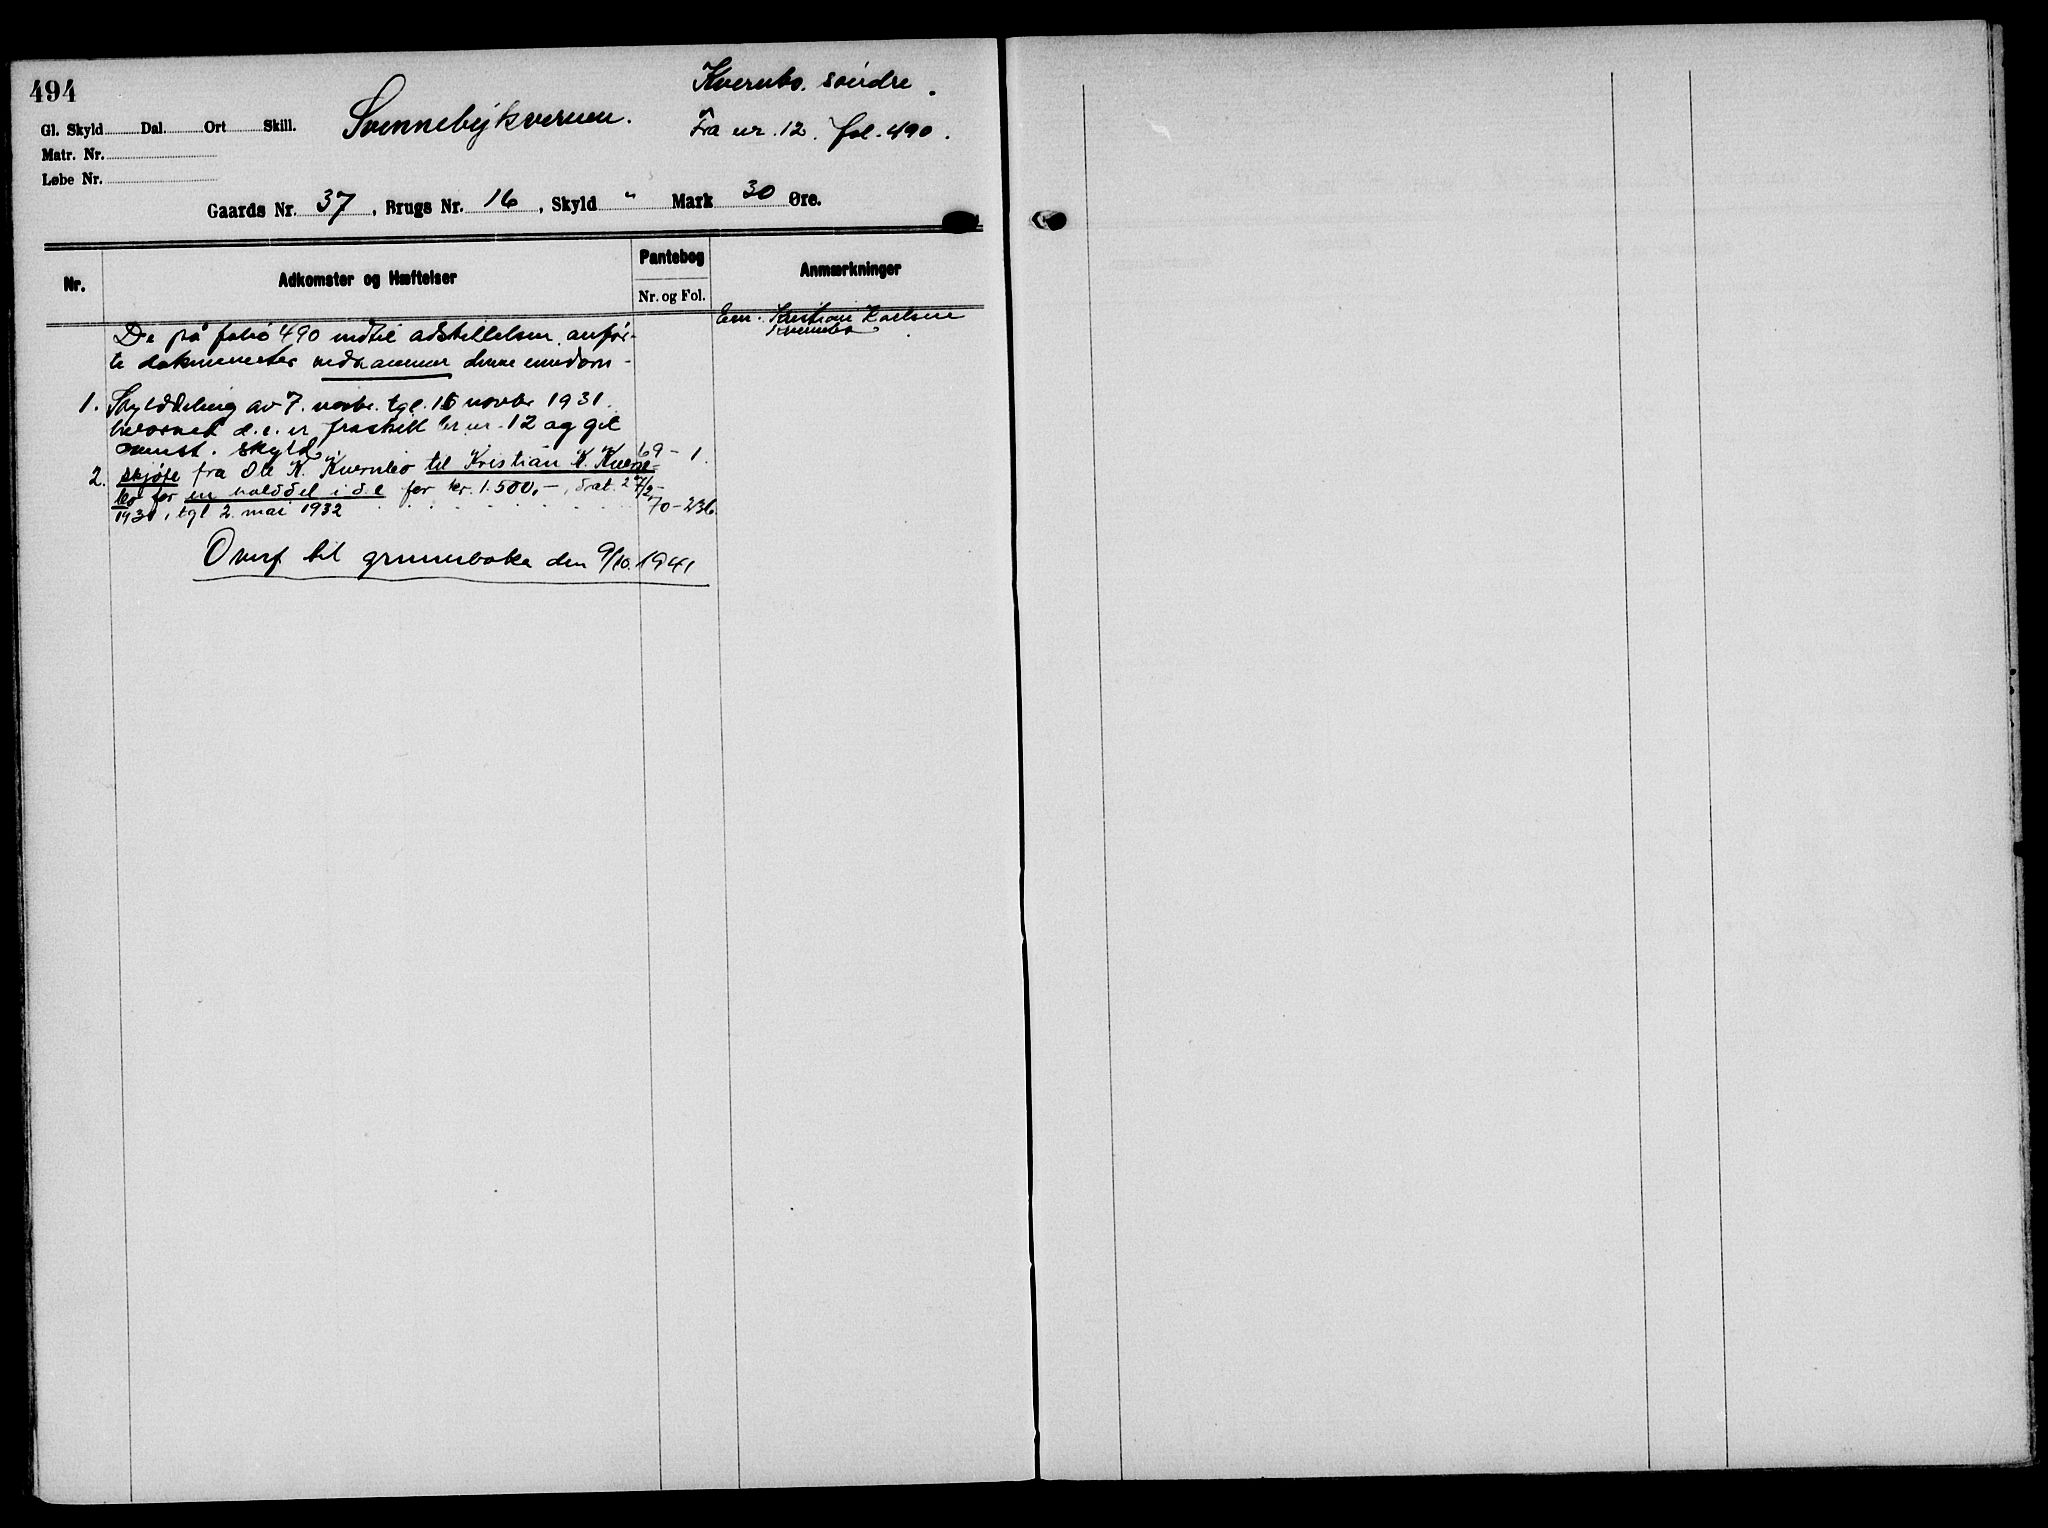 494
Kvernbo. søndre.
Svennebykvernen.
Gl. Skyld Dal. Ort Skill.
Fra nr. 12. fol. 490.
Matr. Nr.
Løbe Nr.
Gaards Nr. 37, Brugs Nr. 16, Skyld " Mark 30 Øre.
Nr.
Adkomster og Hæftelser
Pantebog
Nr. og Fol.
Anmærkninger
Em. Kristian Karlsen
Kvernbo
De på folio 490 indtil adskillelsen anfør-
te dokumenter vedrammer denne eiendom -
1. Skylddeling av 7. novbr. tgl. 16 novbr 1931.
hvorved d. e. er fraskilt br nr. 12 og git
omst. skyld 69 - 1.
2. skjøte fra Ole K. Kvernbo til Kristian K. Kvern-
bo for en halvdel i d. e for kr. 1.500,-, dat. 27/2-
1931, tgl 2. mai 1932 70-236.
Overf til grunnboka den 9/10. 1941